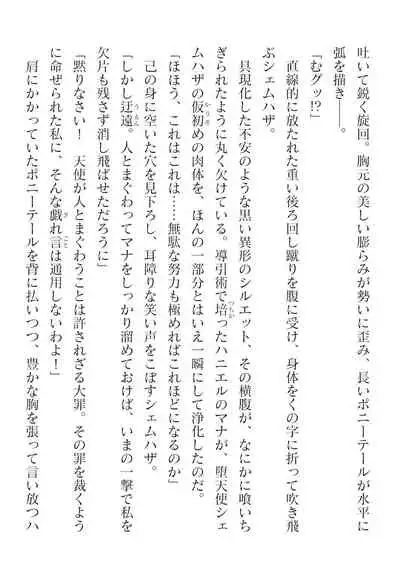 吐いて鋭く旋回。胸元の美しい膨らみが勢いに歪み、長いポニーテールが水平に
弧を描き――。
「むグッ!?」
直線的に放たれた重い後ろ回し蹴りを腹に受け、身体をくの字に折って吹き飛
ぶシェムハザ。
具現化した不安のような黒い異形のシルエット、その横腹が、なにかに喰いち
ぎられたように丸く欠けている。導引術で培ったハニエルのマナが、堕天使シェ
ムハザの仮初めの肉体を、ほんの一部分とはいえ一瞬にして浄化したのだ。
「ほほう、これはこれは……無駄な努力も極めればこれほどになるのか」
己の身に空いた穴を見下ろし、耳障りな笑い声をこぼすシェムハザ。
「しかし迂遠。人とまぐわってマナをしっかり溜めておけば、いまの一撃で私を
欠片も残さず消し飛ばせただろうに」
「黙りなさい！　天使が人とまぐわうことは許されざる大罪。その罪を裁くよう
に命ぜられた私に、そんな戯れ言は通用しないわよ！」
肩にかかっていたポニーテールを背に払いつつ、豊かな胸を張って言い放つハ